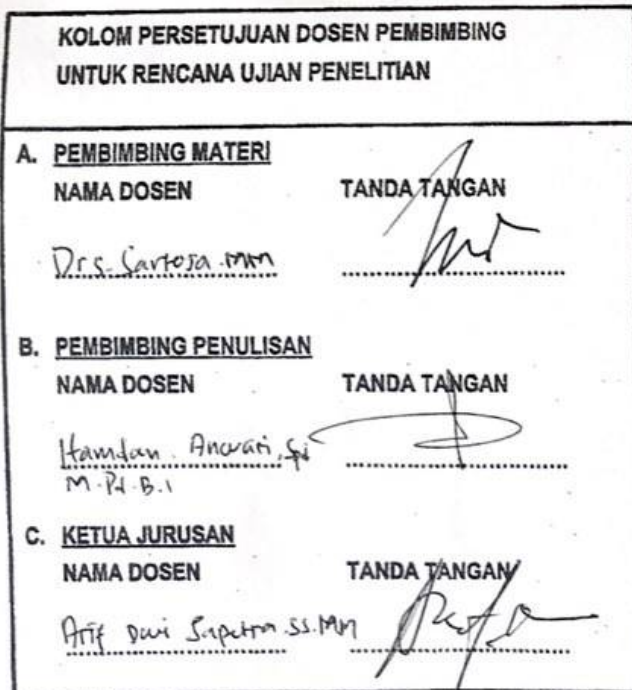 KOLOM PERSETUJUAN DOSEN PEMBIMBING
UNTUK RENCANA UJIAN PENELITIAN
A. PEMBIMBING MATERI
NAMA DOSEN TANDA TANGAN
Drs. Sartosa.MM
B. PEMBIMBING PENULISAN
NAMA DOSEN TANDA TANGAN
Hamdan. Anwari,
M.Pd.B.I
C. KETUA JURUSAN
NAMA DOSEN TANDA TANGAN
Arif Dwi Saputra SS.MM